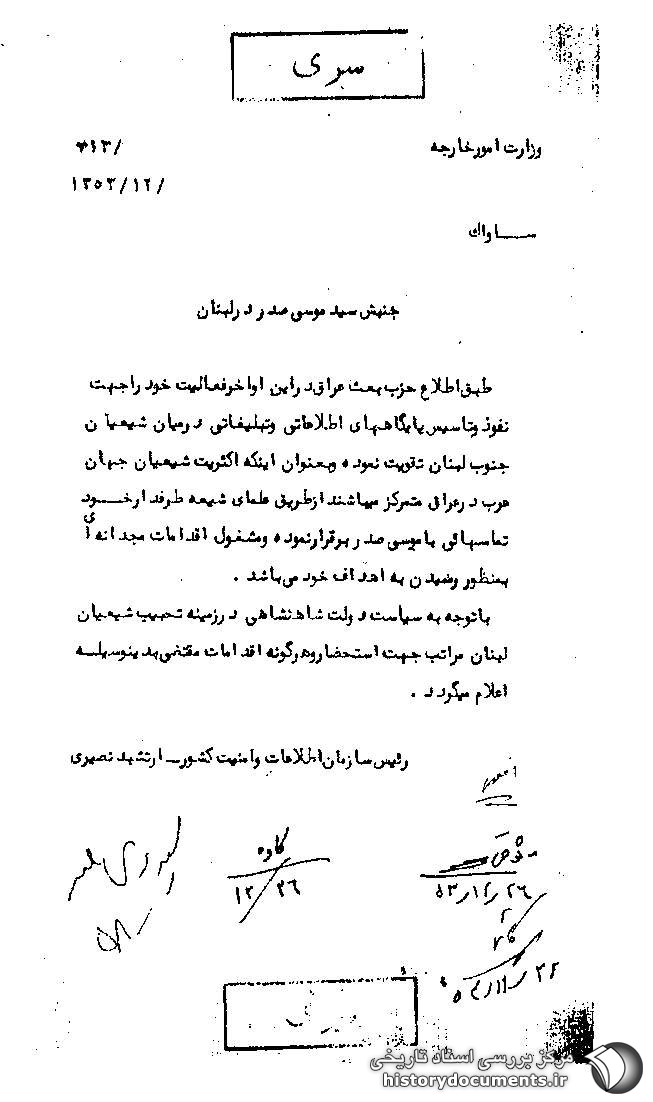 سری
وزارت امورخارجه
۳۱۳/
۱۳۵۳/۱۲/
ســـاواك
جنبش سید موسی صدر در لبنان
طبق اطلاع حزب بعث عراق در این اواخر فعالیت خود را جهت
نفوذ و تاسیس پایگاههای اطلاعاتی و تبلیغاتی در میان شیعیان
جنوب لبنان تقویت نموده و بعنوان اینکه اکثریت شیعیان جهان
عرب در عراق متمرکز میباشند از طریق علمای شیعه طرفدار خـــود
تماسهائی با موسی صدر برقرار نموده و مشغول اقدامات مجدانه ای
بمنظور رسیدن به اهداف خود می باشد .
با توجه به سیاست دولت شاهنشاهی در زمینه تحبیب شیعیان
لبنان مراتب جهت استحضار و هرگونه اقدامات مقتضی بدینوسیلسه
اعلام میگردد .
رئیس سازمان اطلاعات و امنیت کشور ــ ارتشبد نصیری
کاوه
۱۲/۲۶
۵۳/۱۲/۲۶
سری
مرکز بررسی اسناد تاریخی
historydocuments.ir